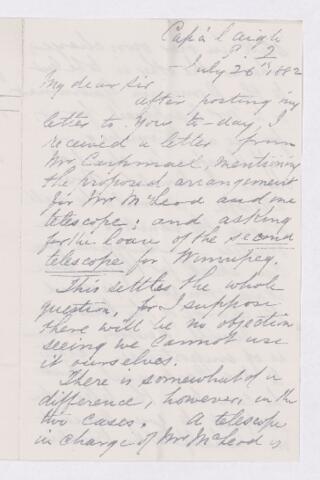 Cap à l'aigle
P. Q
July 26th 1882
My dear Sir
after posting my
letter to you to-day, I
received a letter from
Mr Carpmael, mentioning
the proposed arrangement
for Mr McLeod and one
telescope; and asking
for the loan of the second
telescope for Winnipeg.
This settles the whole
question, for I suppose
there will be no objection
seeing we cannot use
it ourselves.
There is somewhat of a
difference, however, in the
two cases. A telescope
in charge of Mr McLeod is